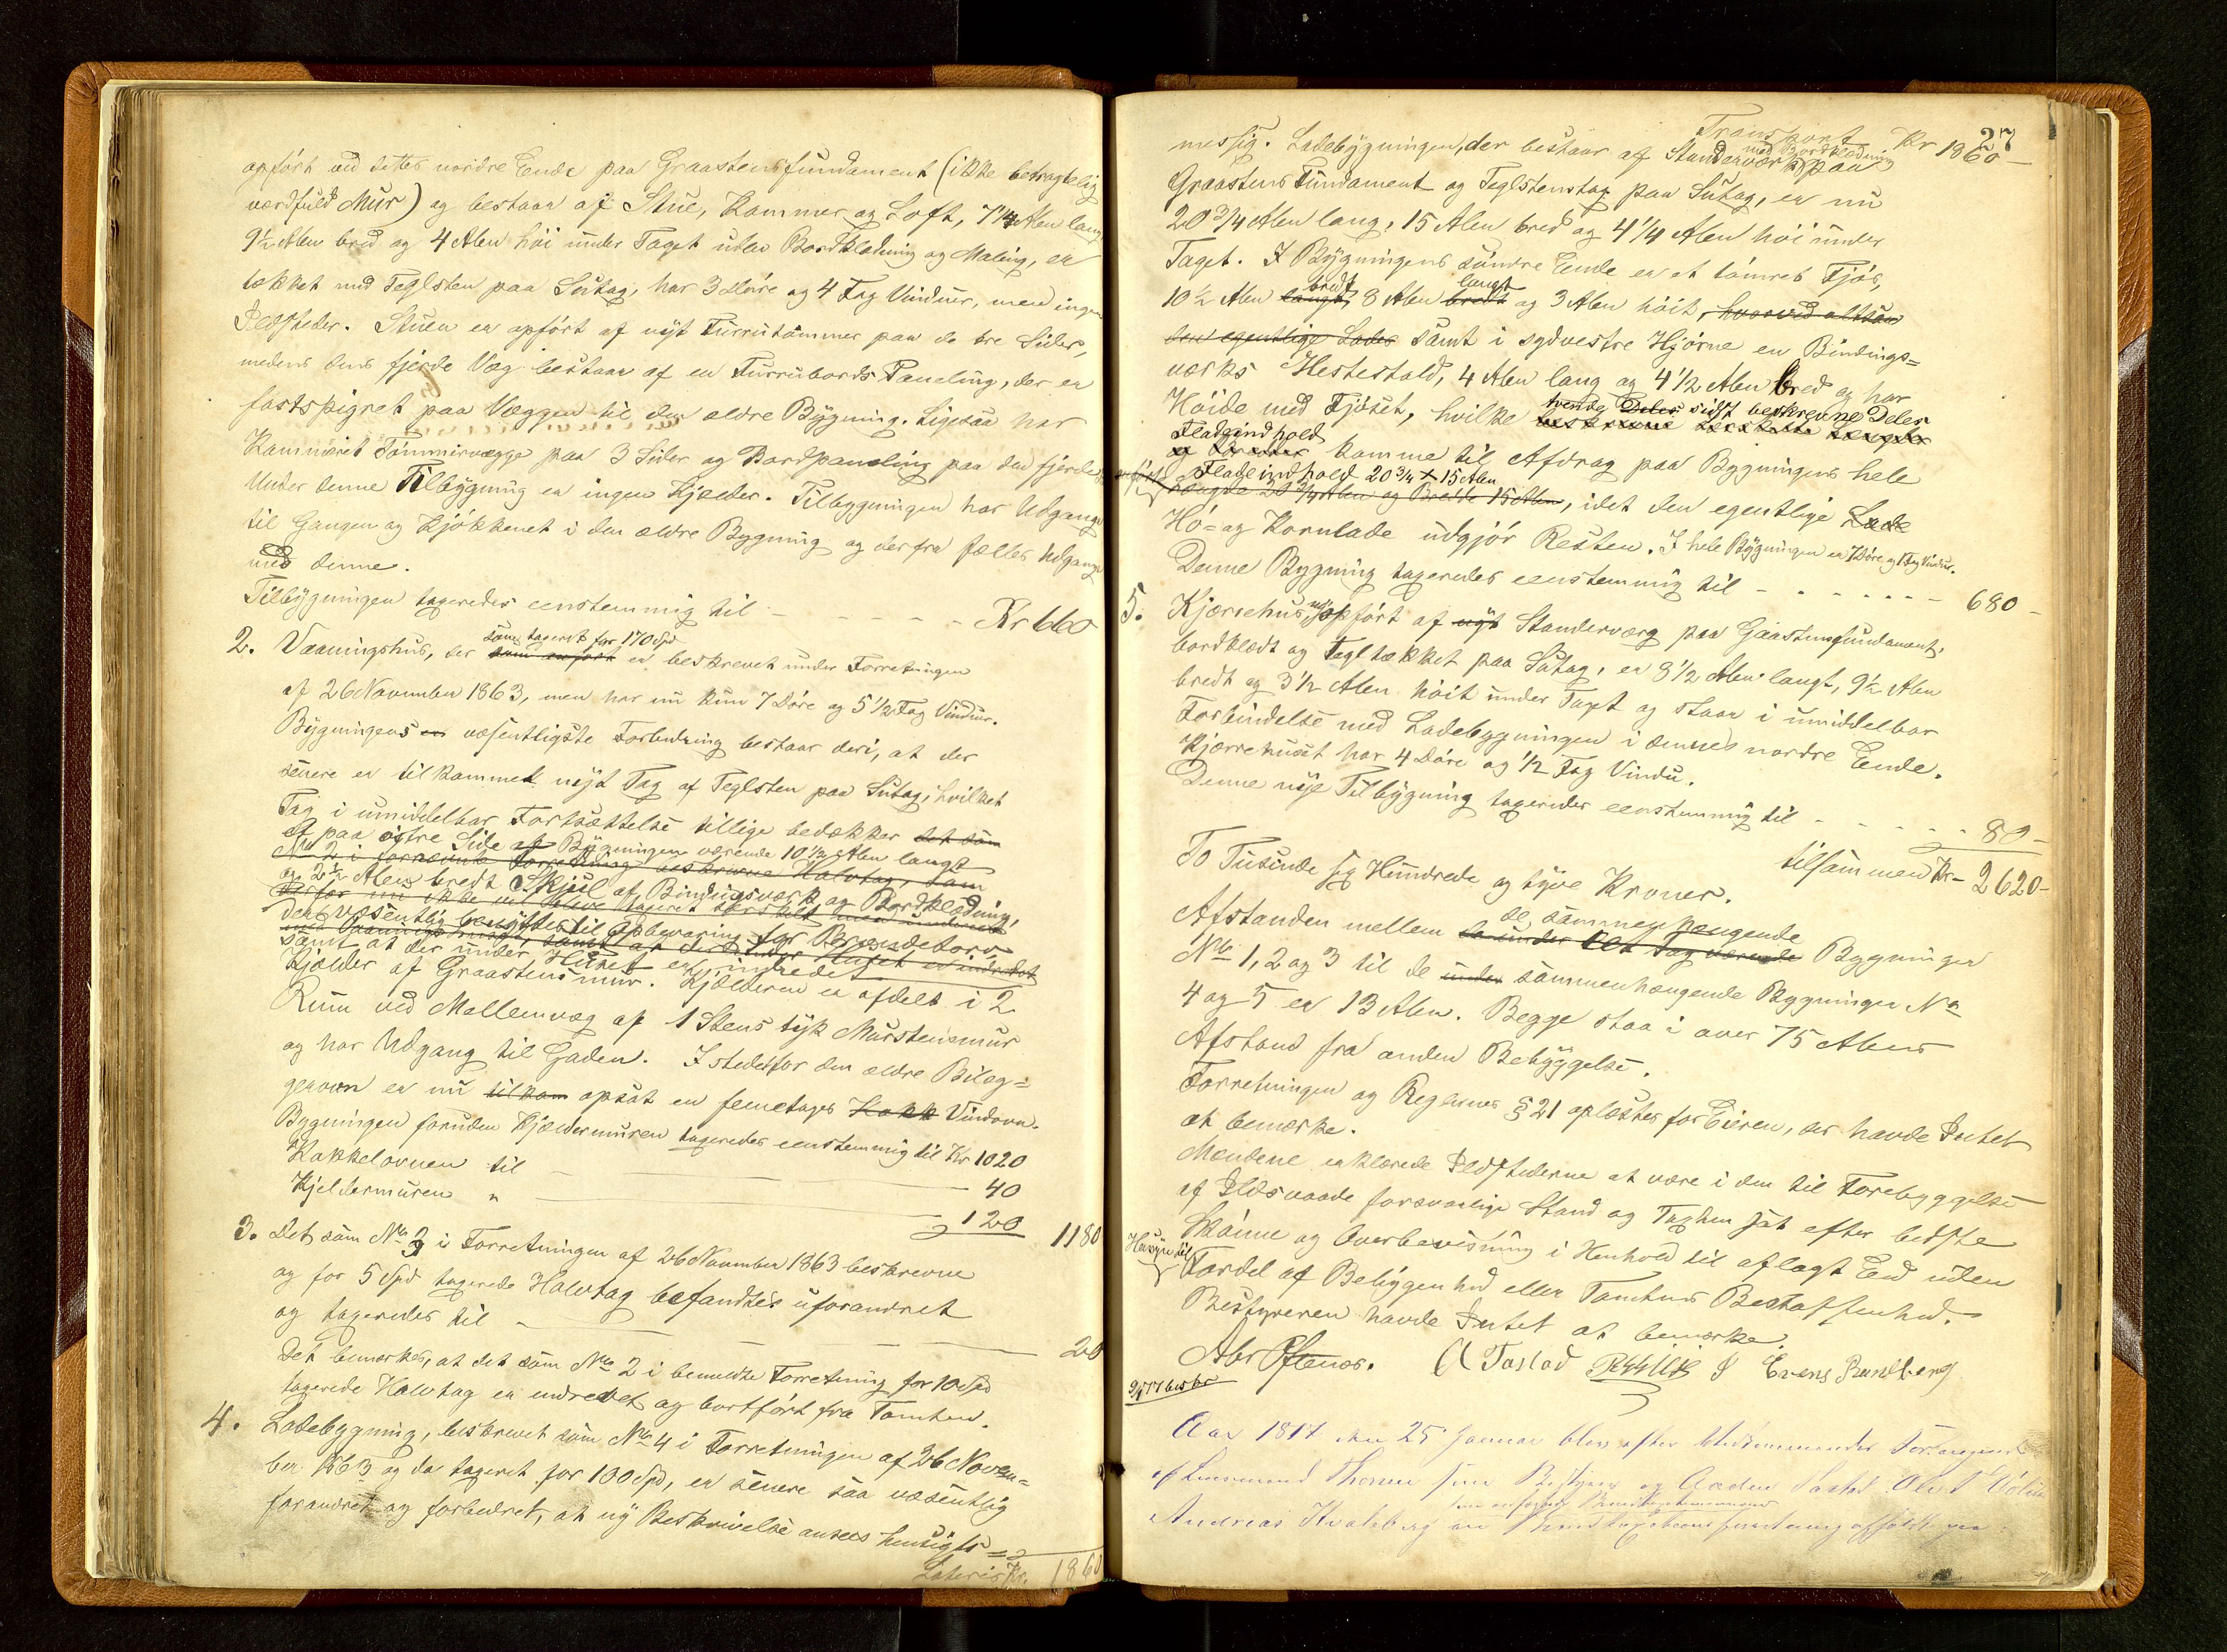 opført ved dettes nordre Ende paa Graastensfundament (ikke betragtelig
værdfuld Mur) og bestaar af Stue, Kammer og Loft, 7 1/4 Alen lang
9 1/2 Alen bred og 4 Alen høi under Taget uden Bordklædning og Maling, er
tækket med Teglsten paa Sutag, har 3 Døre og 4 Fag Vinduer, men ingen
Ildsteder. Stuen er opført af nyt Furrutømmer paa de tre Sider,
medens dens fjerde Væg bestaar af en Furrubords Paneling, der er
fastspigret paa Væggen til den ældre Bygning. Ligesaa har
Kammeret Tømmervægge paa 3 Sider og Bordpaneling paa den fjerde.
Under denne Tilbygning er ingen Kjælder. Tilbygningen har Udgange
til Gangen og Kjøkkenet i den ældre Bygning og derfra fælles Udgange
med denne.
Tilbygningen taxeredes eenstemmig til - Kr 660
2. Vaaningshus, der som taxeret for 170 Spd er beskrevet under Forretningen
af 26 November 1863, men har nu kun 7 Døre og 5 1/2 Fag Vinduer.
Bygningens væsentligste Forbedring bestaar deri, at der
senere er tilkommet nyt Tag af Teglsten paa Sutag, hvilket
Tag i umiddelbar Fortsættelse tillige bedækker det som
et paa østre Side af Bygningen værende 10 1/2 Alen langt
No 2 i fornævnte Forretning beskrevne Halvtag, som
og 2 1/2 Alen bredt Skjul af Bindingsværk og Bordklædning,
der væsentlig benyttes til Opbevaring for Brændetorv
samt at der under Huset er indredet
Kjælder af Graastensmur. Kjælderen er afdelt i 2
Rum ved Mellemvæg af 1 Stens tyk Murstensmur
og har Udgang til Gaden. Istedetfor den ældre Bilæg=
gerovn er nu tilkom opsat en femetages Kakk Vindovn.
Bygningen foruden Kjældermuren taxeredes eenstemmig til Kr 1020
Kakkelovnen til - 40
Kjeldermuren " - 120 1180
3. Det som No 3 i Forretningen af 26 November 1863 beskrevne
og for 5 Spd taxerede Halvtag befandtes uforandret
og taxeredes til - 20
Det bemærkes, at det som No 2 i bemeldte Forretning for 10 Spd
taxerede Halvtag er nedrevet og bortført fra Tomten.
4. Ladebygning, beskrevet som No 4 i Forretningen af 26 Novem=
ber 1863 og da taxeret for 100 Spd, er senere saa væsentlig
forandret og forbedret, at ny Beskrivelse ansees hensigts=
Lateris Kr. 1860
27
Transport Kr 1860 -
messig. Ladebygningen, der bestaar af Standerværk med Bordklædning paa
Graastens Fundament og Teglstenstag paa Sutag, er nu
20 3/4 Alen lang, 15 Alen bred og 4 1/4 Alen høi under
Taget. I Bygningens søndre Ende er et tømret Fjøs,
10 1/2 Alen langt bredt, 8 Alen bredt langt og 3 Alen høit, hvorved altsaa
den egentlige Lades samt i sydvestre Hjørne en Bindings=
værks Hestestald, 4 Alen lang og 4 1/2 Alen bred og har
Høide med Fjøset, hvilke tvende Deler sidst beskrevne Deler
Fladeindhold komme til Afdrag paa Bygningens hele
anførte Fladeindhold 20 3/4 x 15 Alen
Længde 20 3/4 Alen og Bredde 15 Alen, idet den egentlige Lade
Hø- og Kornlade udgjør Resten. I hele Bygningen er 7 Døre og 1 Fag Vindue.
Denne Bygning taxeredes eenstemmig til - 680 -
5. Kjærrehus, nyt opført af nyt Standerværg paa Graastensfundament,
bordklædt og Tegltækket paa Sutag, er 8 1/2 Alen langt, 9 1/2 Alen
bredt og 3 1/2 Alen høit under Taget og staar i umiddelbar
Forbindelse med Ladebygningen i dennes nordre Ende.
Kjærrehuset har 4 Døre og 1/2 Fag Vindu.
Denne nye Tilbygning taxeredes eenstemmig til - 80 -
tilsammen Kr - 2620 -
To Tusinde sex Hundrede og tyve Kroner.
Afstanden mellem de under eet Tag værende de sammenhængende Bygninger
No 1, 2 og 3 til de under sammenhængende Bygninger No
4 og 5 er 13 Alen. Begge staa i over 75 Alens
Afstand fra anden Bebyggelse.
Forretningen og Reglernes § 21 oplæstes for Eieren, der havde Intet
at bemærke.
Mendene erklærede Ildstederne at være i den til Forebyggelse
af Ildsvaade forsvarlige Stand og Taxten sat efter bedste
Skjønne og Overbevisning i Henhold til aflagt Eed uden
Hensyn til
Fordel af Beliggenhed eller Tomtens Beskaffenhed.
Bestyreren havde Intet at bemærke.
Abr Oftenæs. A Tastad
Aar 1877 den 25 Januar blev efter
af Lensmand Thorsen som Bestyrer og
Andreas